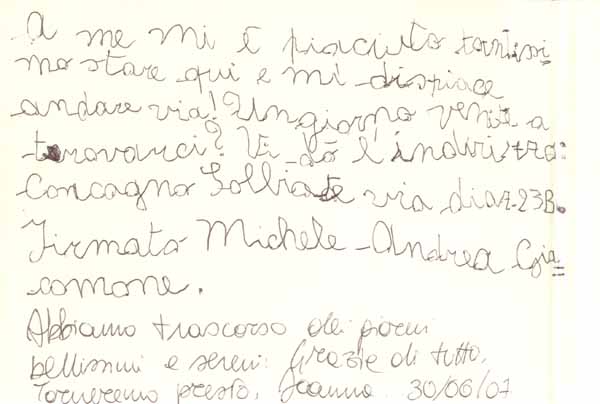 A me mi è piaciuto tantissi
mo stare qui e mi dispiace
andare via! Un giorno venite a
trovarci? Vi dò l'indirizzo:
Concagno Solbiate via diaz 23B.
Firmato Michele-Andrea Gia=
comone.
Abbiamo trascorso dei giorni
bellissimi e sereni. Grazie di tutto.
Torneremo presto. 30/06/07